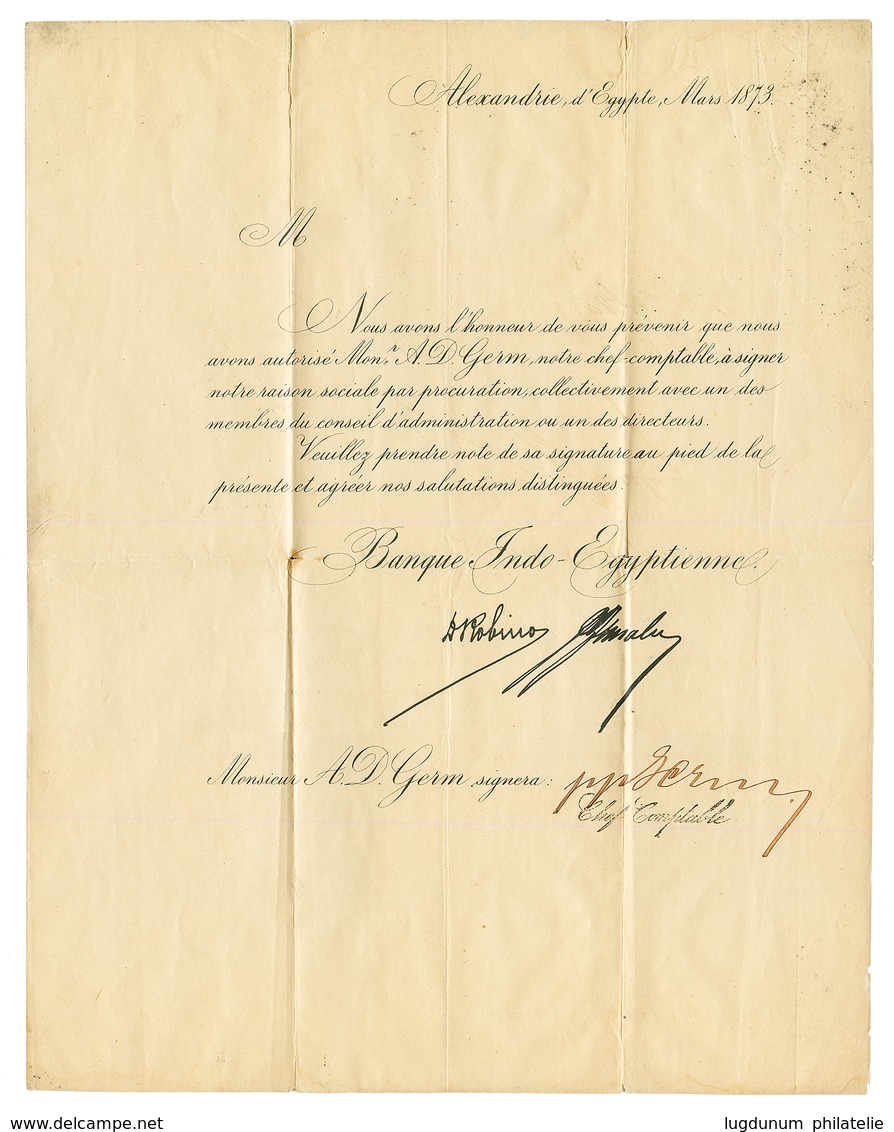 Alexandrie, d'Egypte, Mars 1873.
M
Nous avons l'honneur de vous prévenir que nous
avons autorisé Mon.r A. D. Germ, notre chef-comptable, à signer
notre raison sociale par procuration, collectivement avec un des
membres du conseil d'administration ou un des directeurs.
Veuillez prendre note de sa signature au pied de la
présente et agréer nos salutations distinguées.
Banque Indo-Egyptienne.
D Robino
Monsieur A. D. Germ signera: pp Germ
Chef Comptable
www.delcampe.net lugdunum philatelie